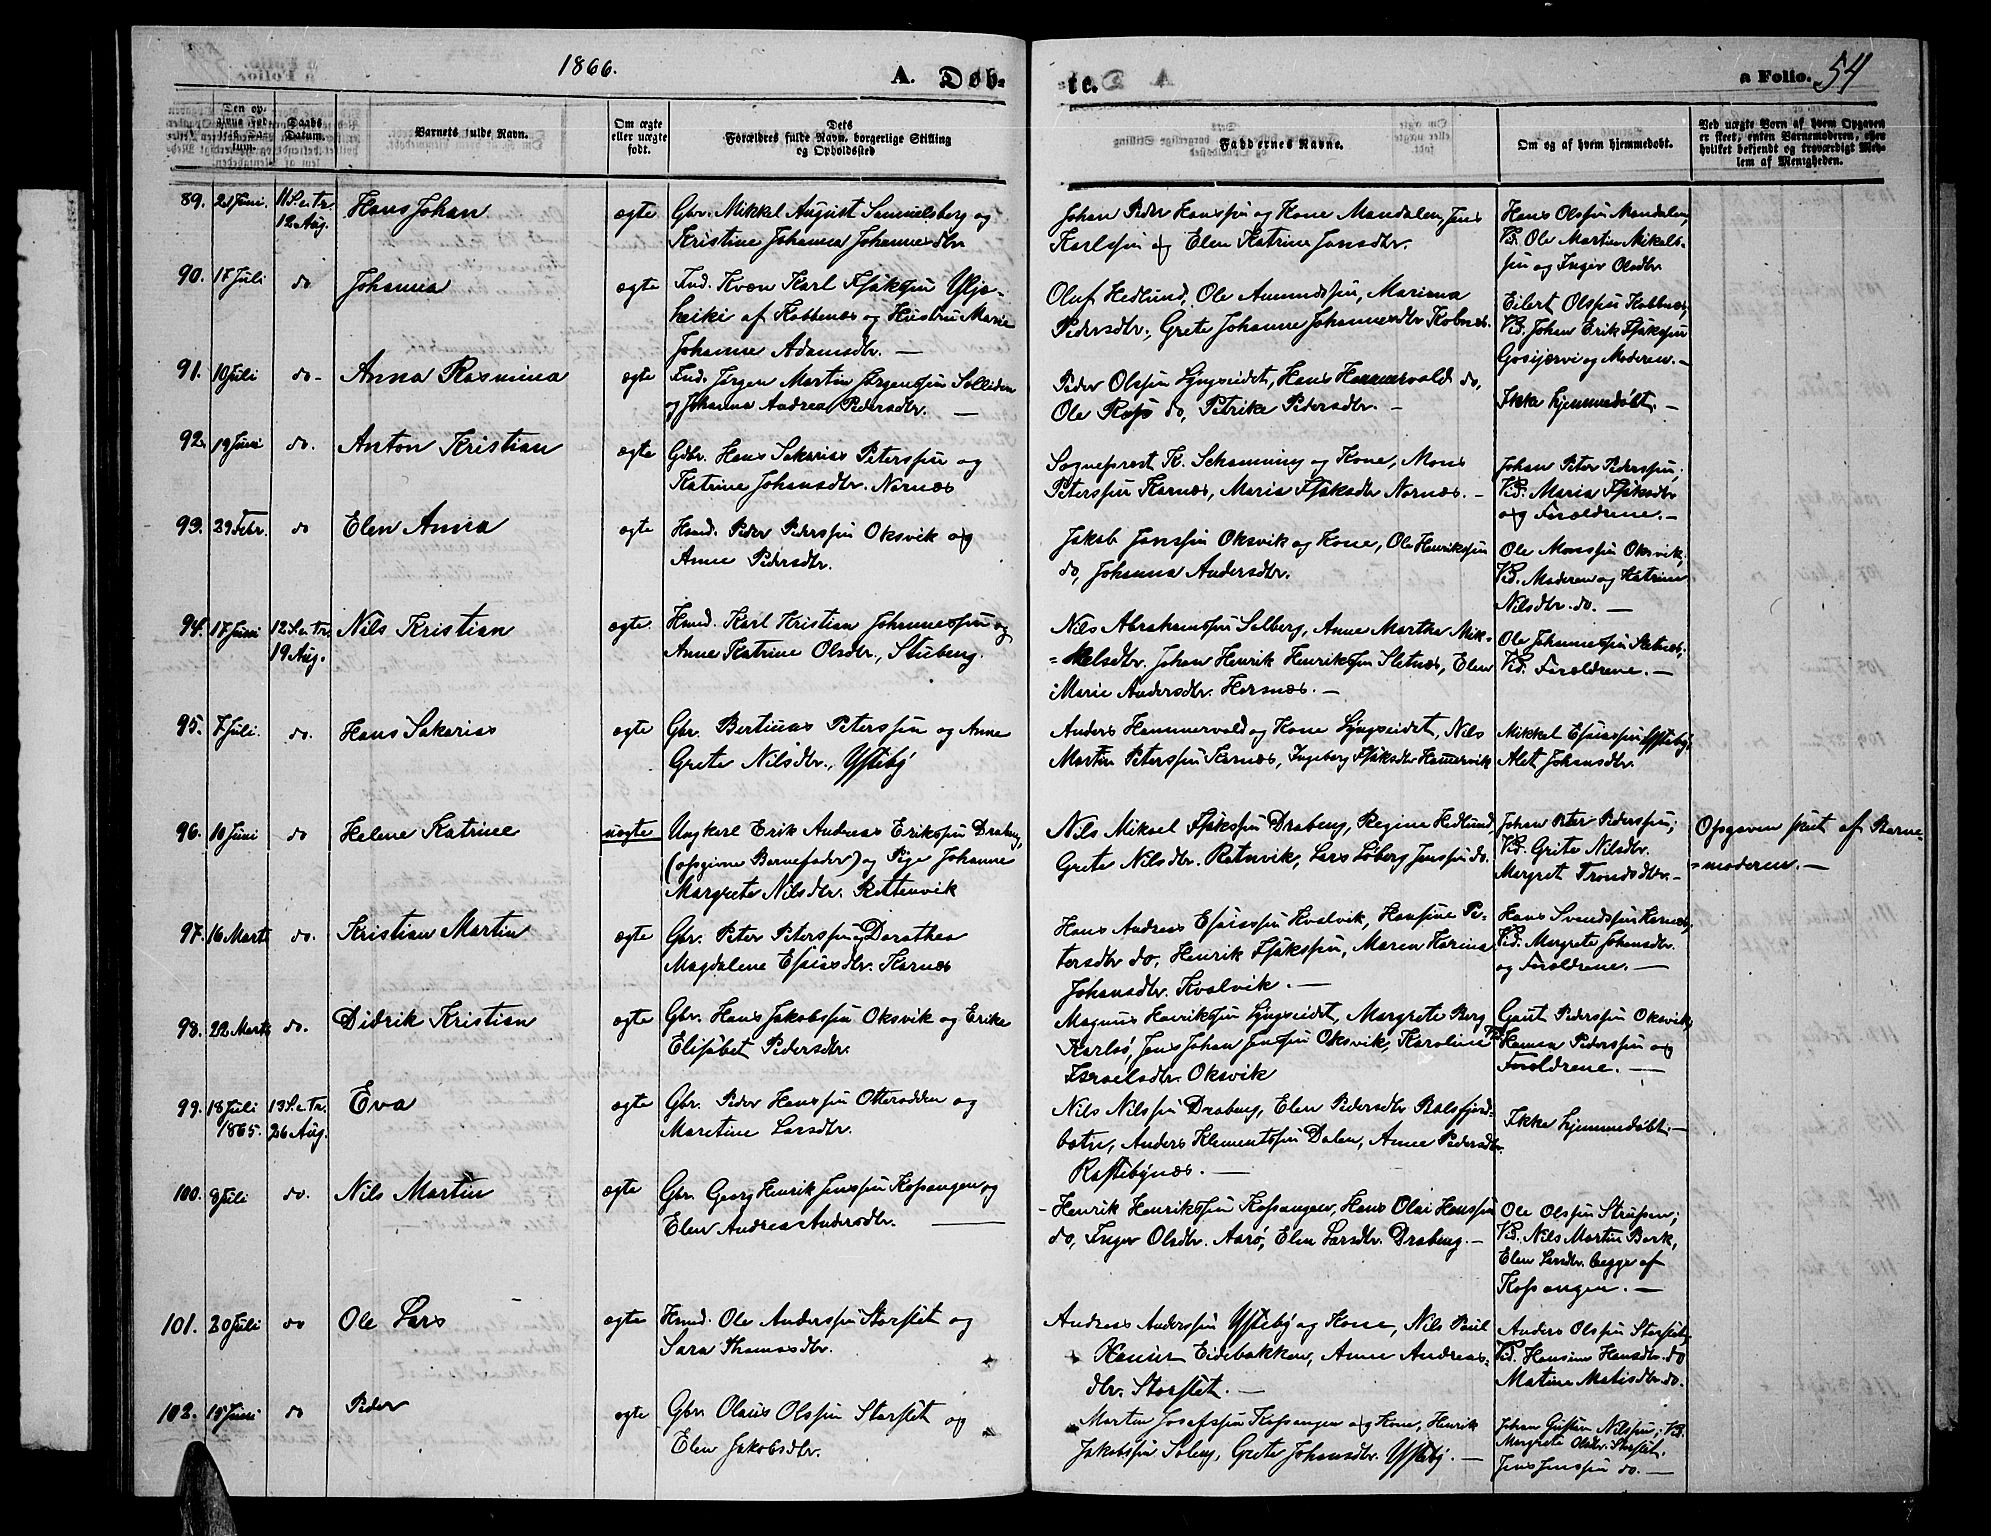 1866.
A. Døb-
te.
a Folio. 54
Dåbs Datum.
Barnets fulde Navn.
Om ægte eller uægte født.
Dets Forældres fulde Navn, borgerlige Stilling og Opholdssted
Faddernes Navne.
Om og af hvem hjemmedøbt.
Ved uægte Børn af hvem Opgaven er skeet, enten Barnemoderen, eller hvilket bekjendt og troværdigt Medlem af Menigheden.
89. 21 Juni. 11 S. e. Tr. 12 Aug. Hans Johan ægte Gbr. Mikkel August Samuelsberg og
Kristine Johanna Johannesdtr
Johan Peder Hanssen og Kone Mandalen, Jens
Karlssen og Elen Katrine Jonsdtr.
Hans Olssen Mandalen,
Vid. Ole Martin Mikels-
sen og Inger Olsdtr
90. 17 Juli do Johanna ægte Ind. Kvæn Karl Isaksen Yliæ-
heiki af Kobbenes og Hustru Maria
Johanne Adamsdtr. —
Oluf Hedlund, Ole Amundssen, Mariana
Pedersdtr, Grete Johanne Johannesdtr Kobnes.
Eilert Olssen Kobbnes,
Vid. Johan Erik Isaksen
Gosijærvi og Moderen. —
91. 10 Juli do- Anna Rasmina ægte Ind. Jørgen Martin Jørgenssen Solliden
og Johanna Andrea Pedersdtr. —
Peder Olssen Lyngseidet, Hans Hammervold do,
Ole Ross do, Petrike Pedersdtr. —
Ikke hjemmedøbt. —
92. 19 Juni do. Anton Kristian ægte Gdbr. Hans Sakarias Peterssen og
Katrine Johansdtr. Nornæs
Sogneprest K. Schanning og Kone, Mons
Peterssen Karnæs, Maria Isaksdtr Nornæs. —
Johan Peter Pederssen;
Vid. Maria Isaksdtr
og Forældrene. —
93. 29 Febr. do Elen Anna ægte Hmd. Peder Pederssen Oksvik og
Anne Pedersdtr.
Jakob Janssen Oksvik og Kone, Ole Henrikssen
do, Johanna Andersdtr.
Ole Monssen Oksvik;
Vid. Moderen og Katrine
Nilsdtr. do. —
94. 17 Juni 12 S. e. Tr. 19 Aug. Nils Kristian ægte. Hmd. Karl Kristian Johannessen og
Anne Katrine Olsdtr., Stubeng.
Nils Abrahamssen Solberg, Anne Martha Mik-
=kelsdtr. Johan Henrik Henrikssen Sletnæs, Elen
Marie Andersdtr. Horsnæs. —
Ole Johannessen Sletnæs;
Vid. Forældrene. —
95. 7 Juli. do. Hans Sakarias ægte Gbr. Bertinus Peterssen og Anne
Grete Nilsdtr., Ysteby
Anders Hammervold og Kone Lyngseidet, Nils
Martin Peterssen Karnæs, Ingeborg Isaksdtr Hamervik
Mikkel Esaiassen Ysteby,
Alet Johansdtr.
96. 10 Juni do Helene Katrine uægte Ungkarl Erik Andreas Erikssen Drabeng,
(opgivne Barnefader) og Pige Johanne
Margrete Nilsdtr. Rottenvik
Nils Mikael Isakssen Drabeng, Regine Hedlund,
Grete Nilsdtr. Rotnvik, Lars Løberg Jenssen do.
Johan Peter Pederssen;
Vid. Grete Nilsdtr.
Margret Trondsdtr. —
Opgaven skeet af Barne-
=moderen. —
97. 16 Marts do. Kristian Martin ægte Gbr. Peter Peterssen og Dorothea
Magdalene Esaiasdtr. Karnæs
Hans Andreas Esaiassen Kvalvik, Hansine Pe-
tersdtr do, Henrik Isakssen, Maren Karina
Johansdtr. Kvalvik. —
Hans Svendssen Karnæs;
Vid. Margrete Johansdtr.
og Forældrene. —
98. 22 Marts do. Didrik Kristian ægte Gbr. Hans Jakobssen Oksvik og Erika
Elisabet Pedersdtr.
Magnus Henrikssen Lyngseidet, Margrete Berg
Karlsø, Jens Johan Jenssen Oksvik, Karoline
Israelsdtr. Oksvik
Gaut Pederssen Oksvik,
Vid. Hansa Pederssen og
Forældrene. —
99. 18 Juli 1865. 13 S. e. Tr. 26 Aug. Eva ægte Gbr. Peder Hanssen Otterodden og
Maretine Larsdtr.
Nils Nilssen Drabeng, Elen Pedersdtr Balsfjord-
botn, Anders Klementssen Dalen, Anne Pedersdtr.
Rastebynæs. —
Ikke hjemmedøbt. —
100. 8 Juli do. Nils Martin ægte Gbr. Georg Henrik Jenssen Kopangen og
Elen Andrea Andersdtr. —
Henrik Henrikssen Kopangen, Hans Olai Hanssen
do, Inger Olsdtr. Aarø, Elen Larsdtr. Drabeng. —
Ole Olssen Strupen;
Vid. Nils Martin Berk,
Elen Larsdtr. begge af
Kopangen. —
101. 20 Juli do Ole Lars ægte Hmd. Ole Anderssen Storslet og
Sara Thomasdtr.
Andreas Anderssen Ysteby og Kone, Nils Paul
Hansen Eidebakken, Anne Andreas-
dtr. Storslet. —
Anders Olssen Storslet,
Vid. Hansine Hansdtr. do
Matine Matisdtr do.
102. 15 Juni do Peder ægte Gbr. Olaus Olssen Storslet og
Elen Jakobsdtr.
Martin Josefssen Kopangen og Kone, Henrik
Jakobssen Soleng, Grete Johansdtr. Ysteby. —
Johan Gustav Nilssen; Vid.
Margrete Olsdtr. Storslet.
Jens Jenssen do. —